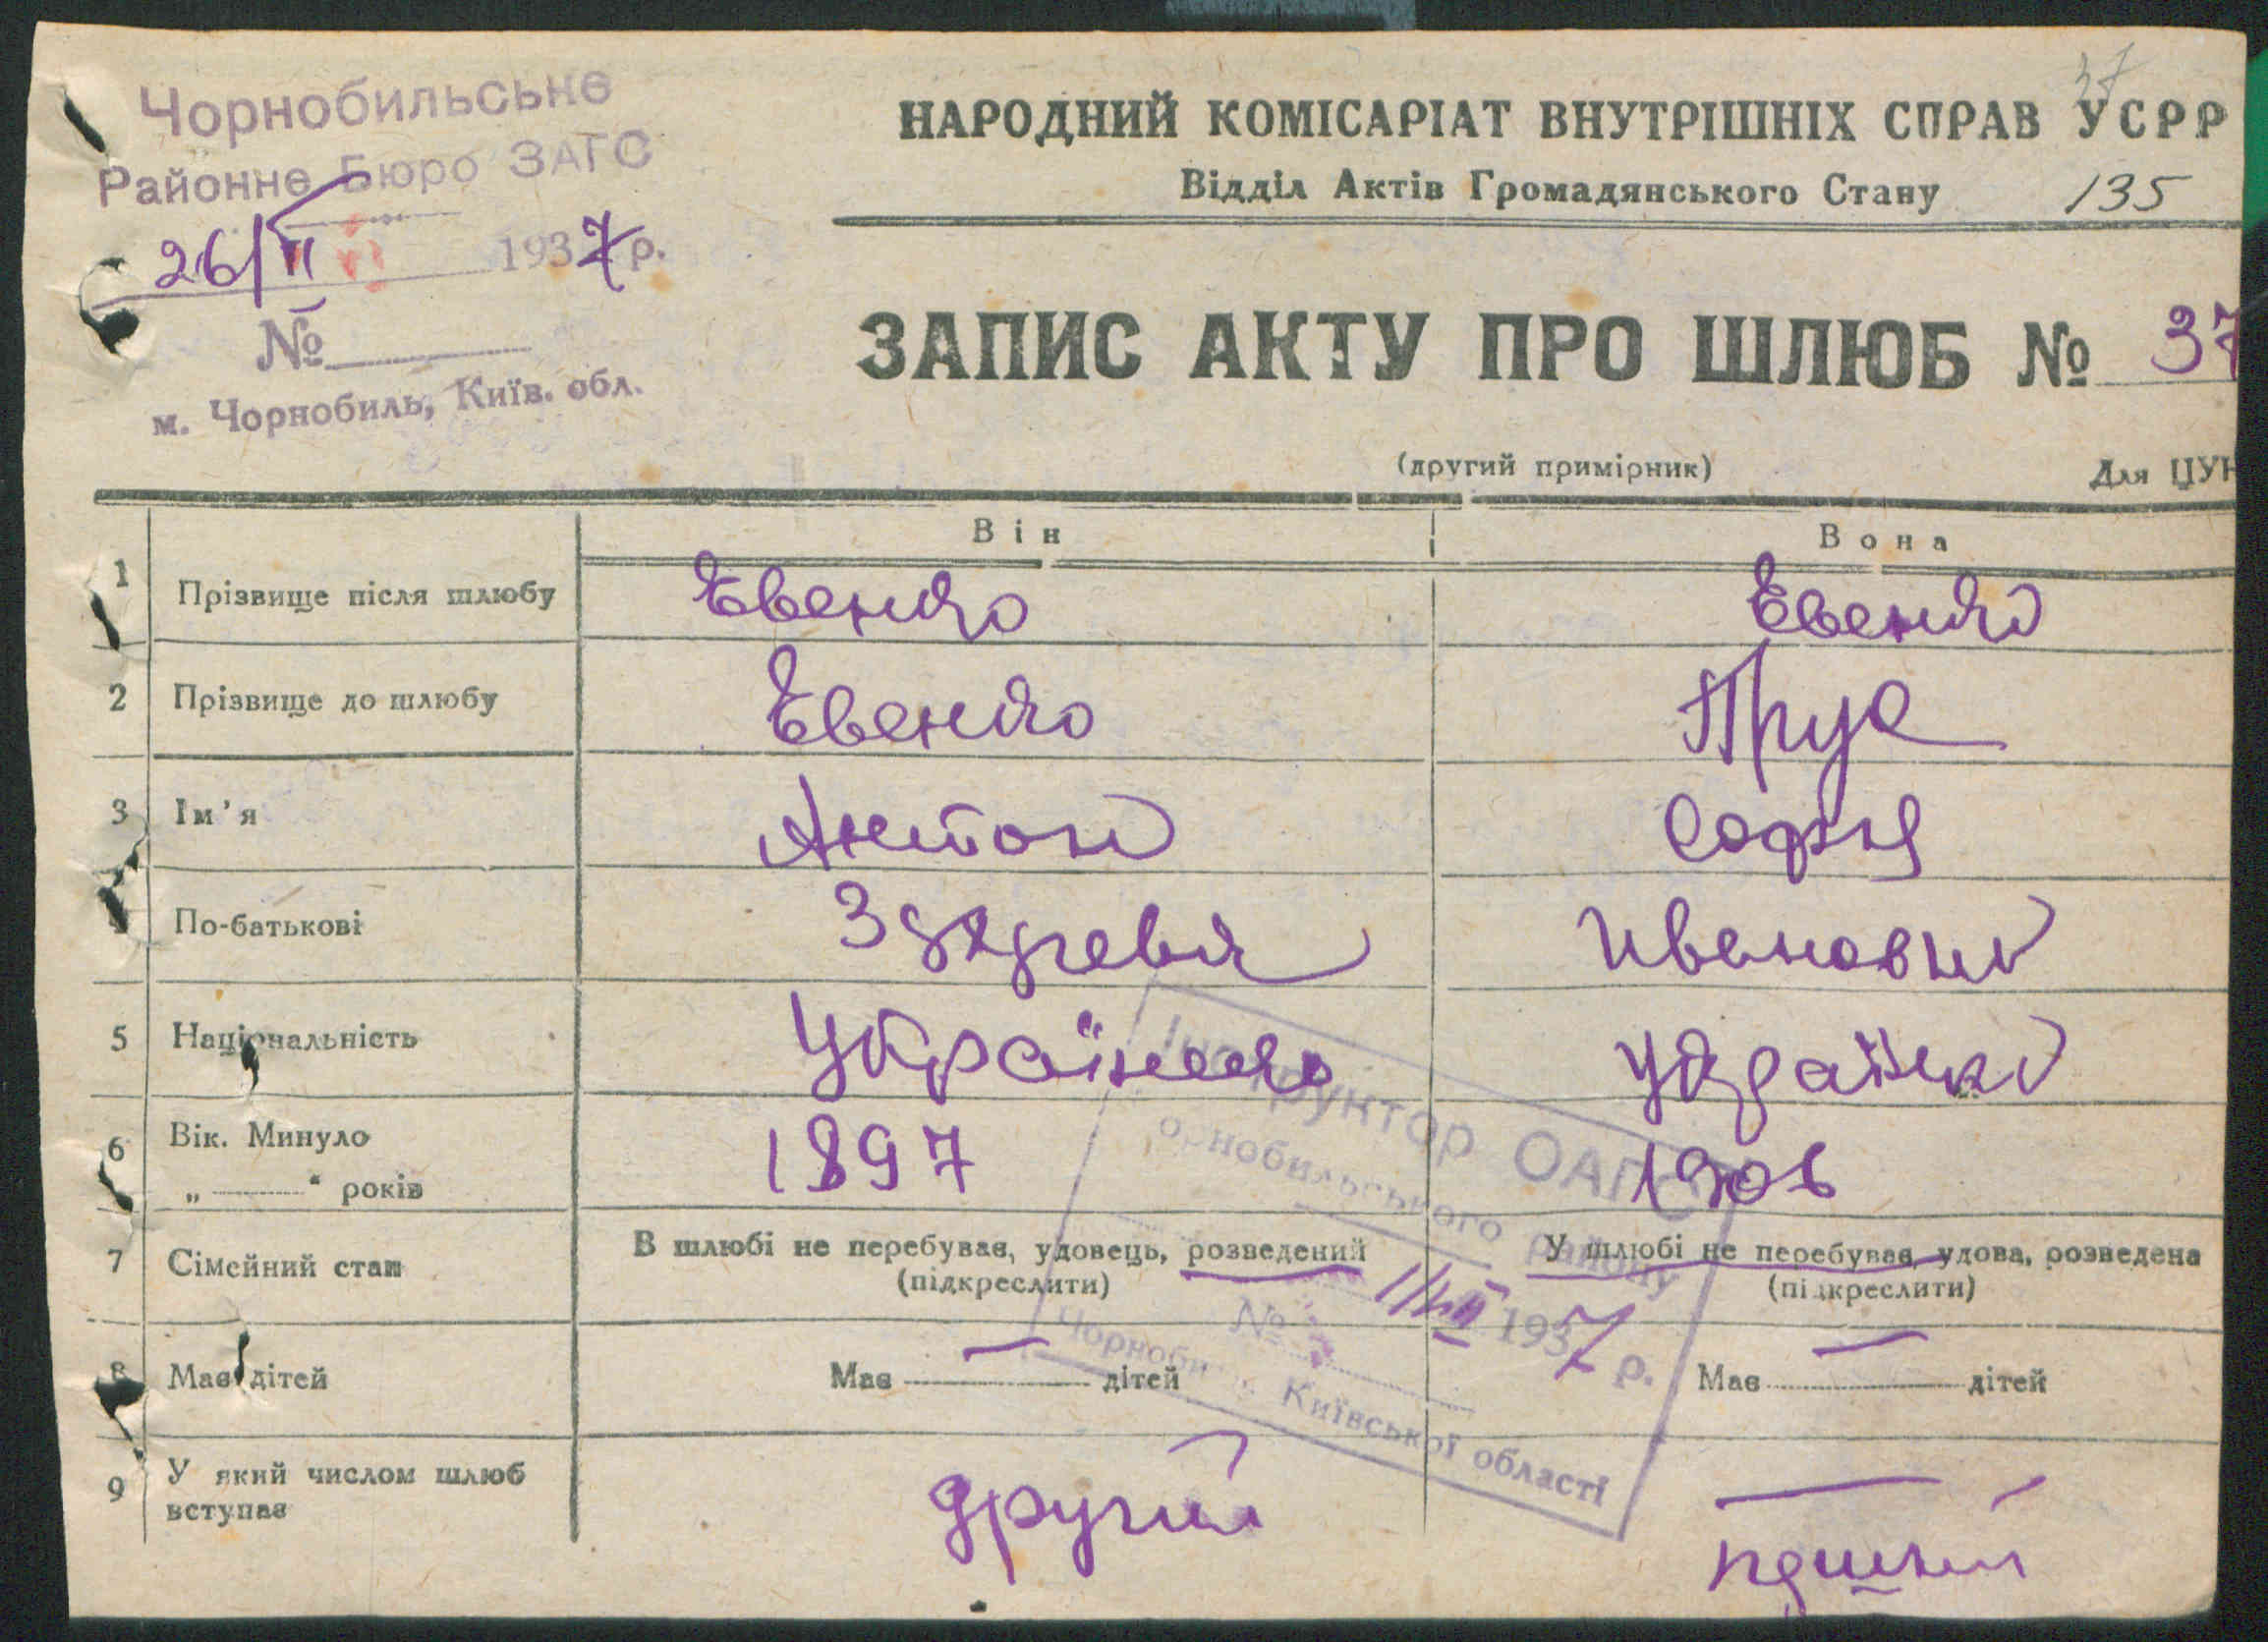 Чорнобильське
Районне Бюро ЗАГС
26/II 1937 р.
№
м. Чорнобиль, Київ. обл.
37
НАРОДНИЙ КОМІСАРІАТ ВНУТРІШНІХ СПРАВ УСРР
Відділ Актів Громадянського Стану
135
ЗАПИС АКТУ ПРО ШЛЮБ № 37
(другий примірник)
Для ЦУН
Він Вона
1 Прізвище після шлюбу Евенко Евенко
2 Прізвище до шлюбу Евенко Прус
3 Ім'я Антон Софія
По-батькові Ивановна
5 Національність Українець Українка
6 Вік. Минуло 1897 1906
„ “ років
7 Сімейний стан В шлюбі не перебував, удовець, розведений У шлюбі не перебувае, удова, розведена
(підкреслити) (підкреслити)
8 Має дітей Має — дітей Має — дітей
9 У який числом шлюб вступає другий перший
Інструктор ОАГС
орнобильського району
№ 1937 р.
Чорноби Київської області